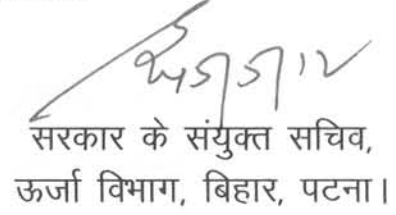 सरकार के संयुक्त सचिव,
ऊर्जा विभाग, बिहार, पटना।